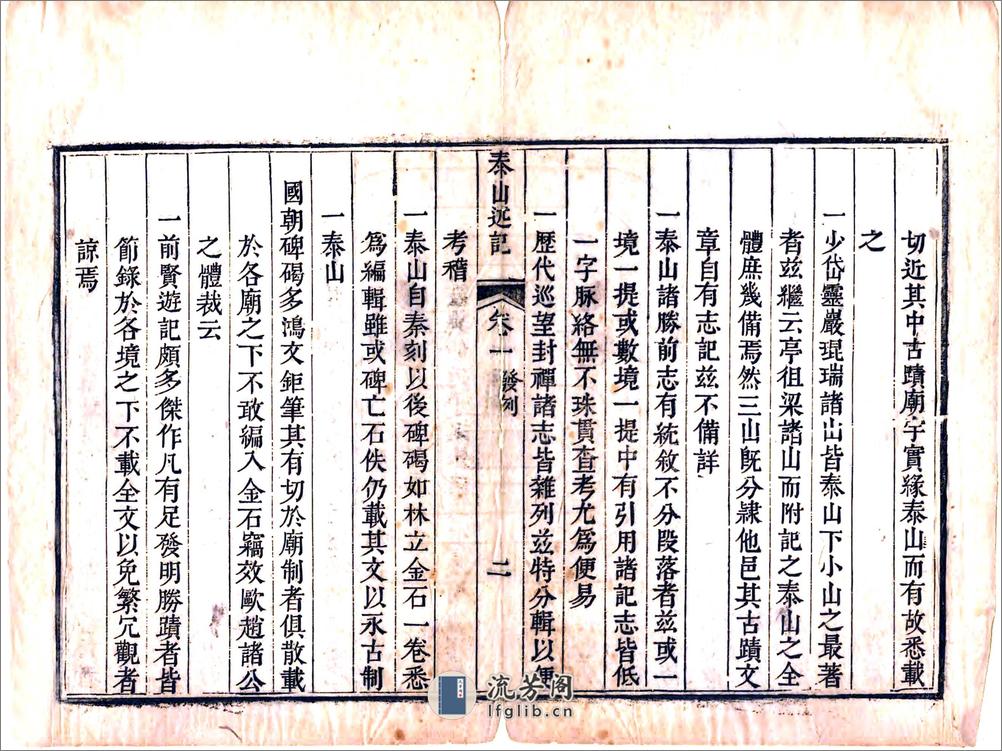 切近其中古蹟廟宇實緣泰山而有故悉載
之
一少岱靈巖琨瑞諸山皆泰山下小山之最著
者兹繼云亭徂梁諸山而附記之泰山之全
體庶幾備焉然三山旣分隷他邑其古蹟文
章自有志記兹不備詳
一泰山諸勝前志有統敘不分段落者兹或一
境一提或數境一提中有引用諸記志皆低
一字脉絡無不珠貫查考尤爲便易
一歷代巡望封禪諸志皆雜列兹特分輯以便
泰山述記 卷一 發列 二
考稽
一泰山自秦刻以後碑碣如林立金石一卷悉
爲編輯雖或碑亡石佚仍載其文以永古制
一泰山
國朝碑碣多鴻文鉅筆其有切於廟制者俱散載
於各廟之下不敢編入金石竊效歐趙諸公
之體裁云
一前賢遊記頗多傑作凡有足發明勝蹟者皆
節錄於各境之下不載全文以免繁冗觀者
諒焉
流芳阁
lfglib.cn